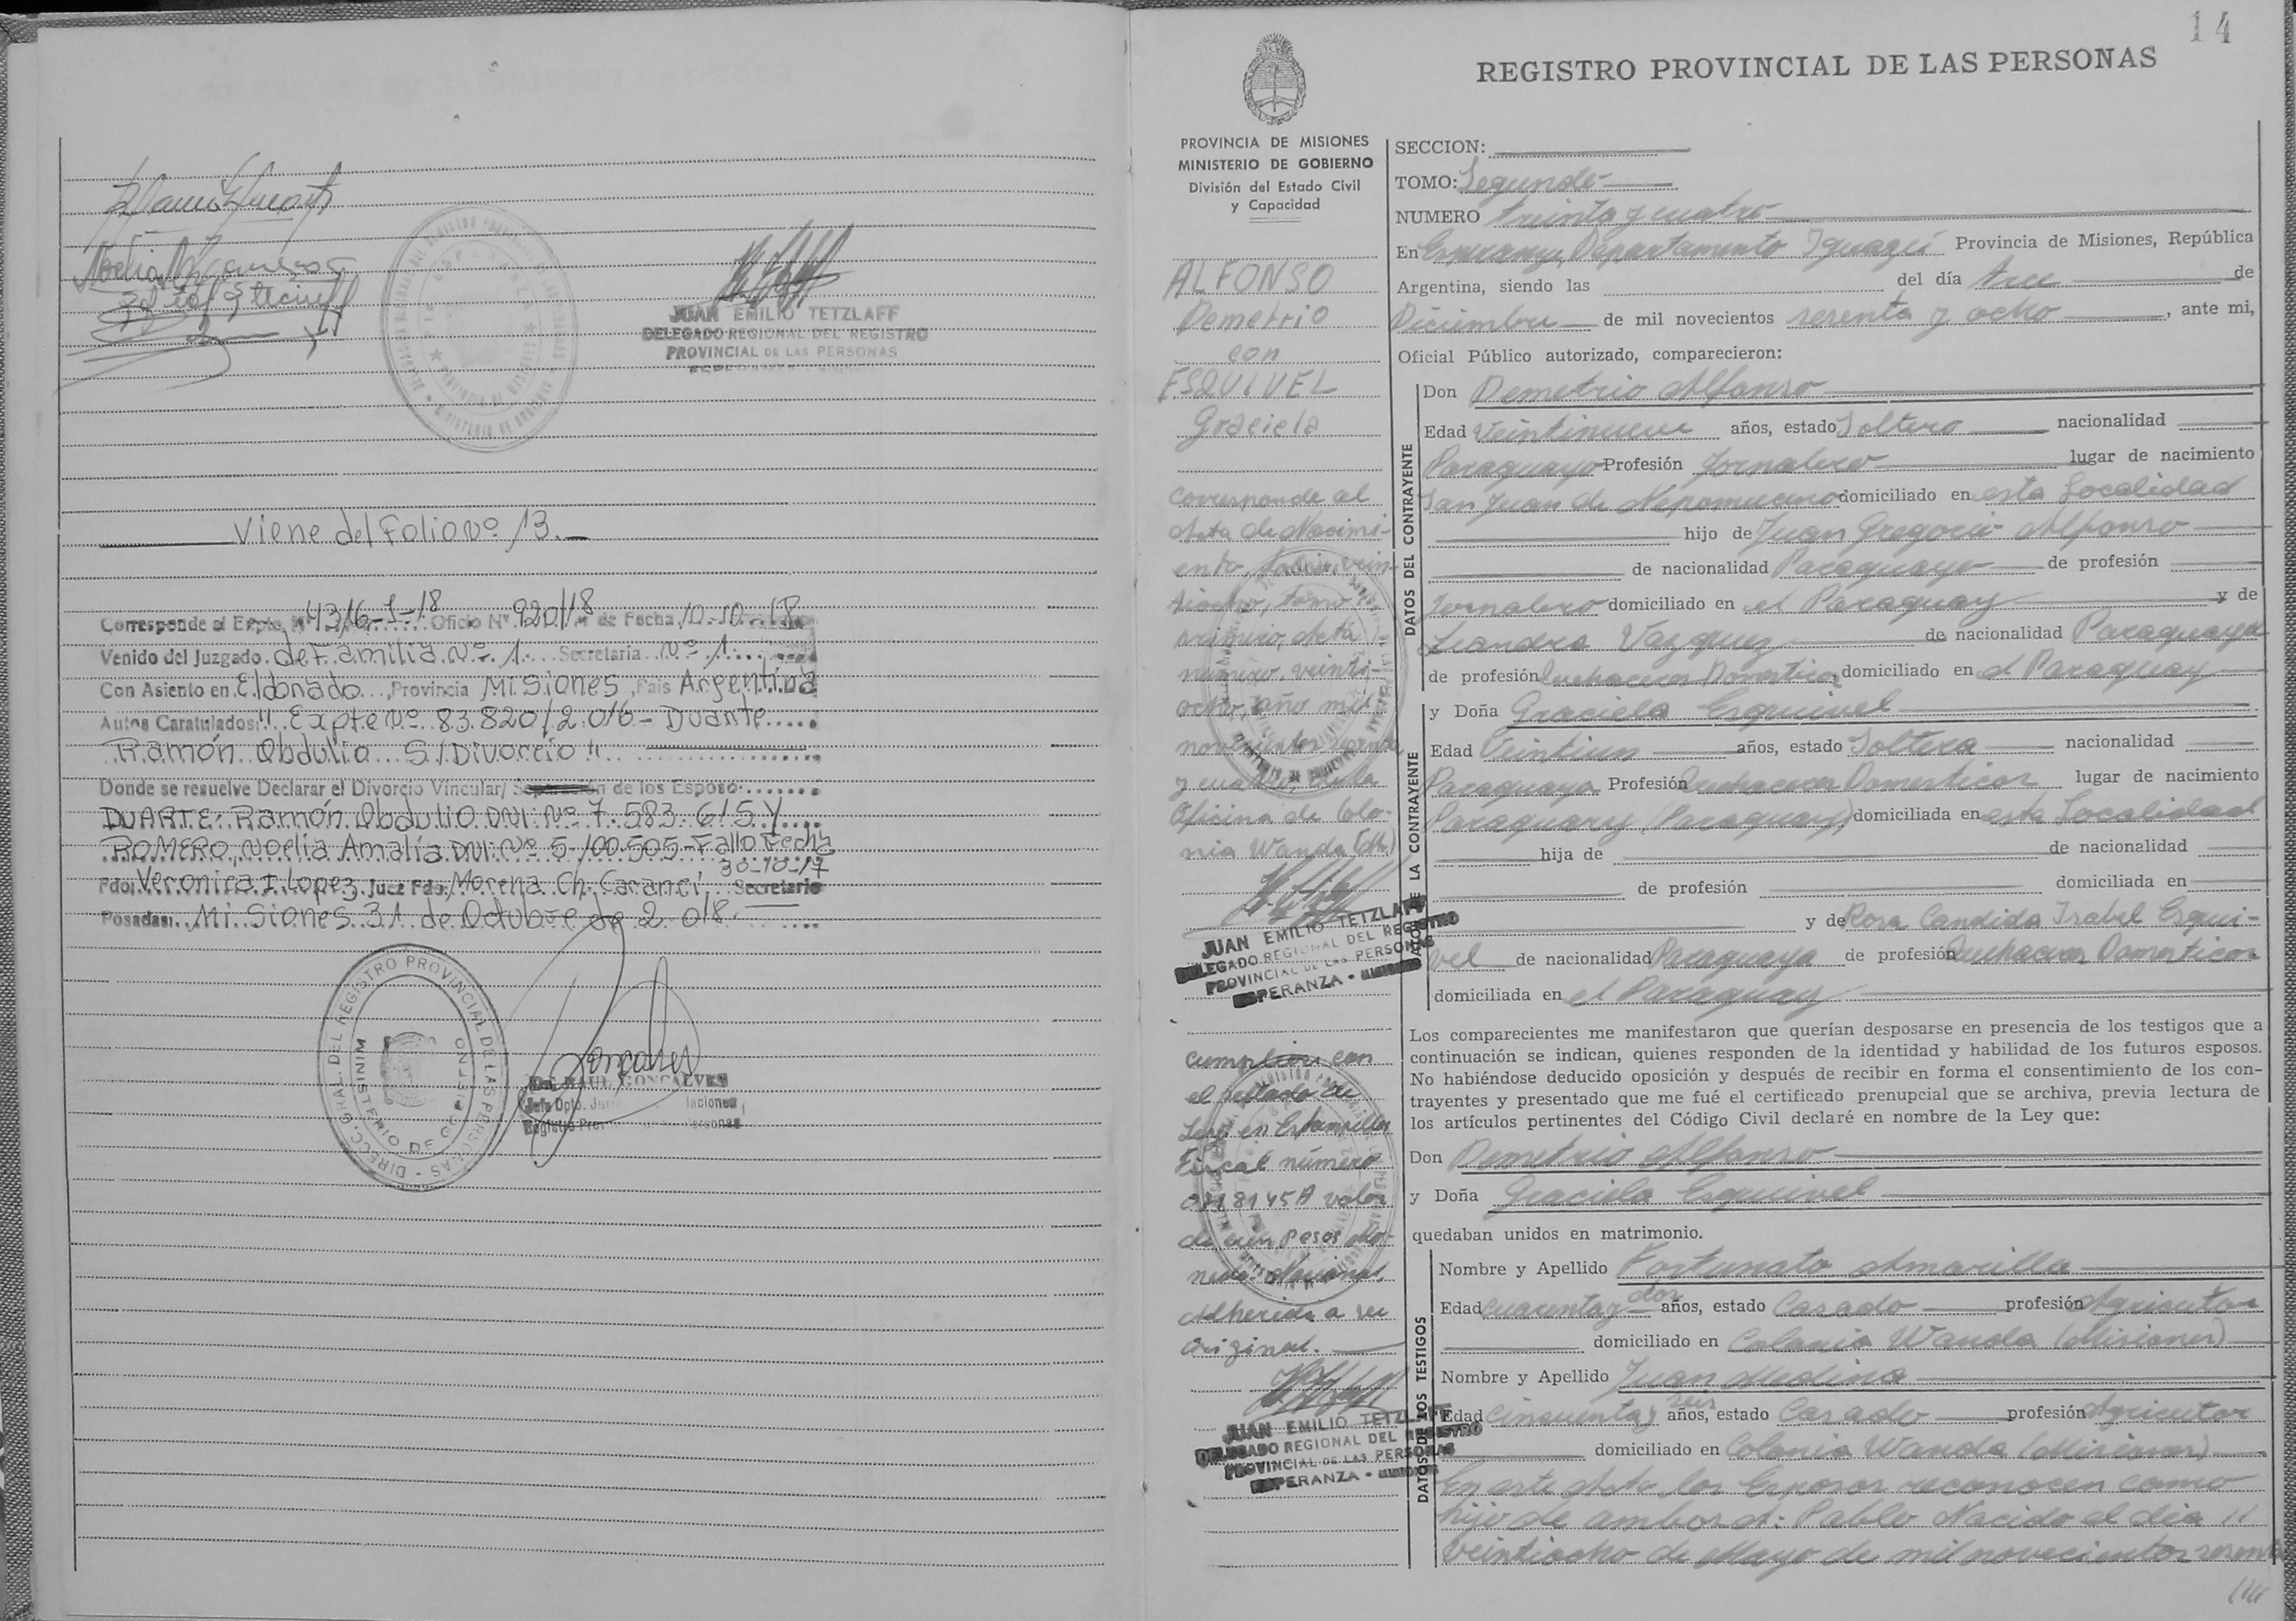 Viene del Folio Nº 13.—
Corresponde al Expte. Nº 4316-J-18 Oficio Nº 920/18 de Fecha 10-10-18
Venido del Juzgado de Familia Nº 1 Secretaría Nº 1
Con Asiento en Eldorado, Provincia Misiones, País Argentina
Autos Caratulados: "Expte Nº 83.820/2.016 - Duarte
Ramón Obdulio S/Divorcio"
Donde se resuelve Declarar el Divorcio Vincular/ Separación de los Esposo:
DUARTE: Ramón Obdulio DNI Nº 7.583.615 Y
ROMERO, Noelia Amalia DNI Nº 5.100.505 - Fallo Fecha
30-10-17
Fdo: Veronica I. Lopez Juez Fdo: Morena Ch. Caranci Secretario
Posadas: Misiones 31 de Octubre de 2.018.
JUAN EMILIO TETZLAFF
DELEGADO REGIONAL DEL REGISTRO
PROVINCIAL DE LAS PERSONAS
DIRECC. GRAL. DEL REGISTRO PROVINCIAL DE LAS PERSONAS
MINISTERIO DE GOBIERNO
RAUL GONCALVES
14
REGISTRO PROVINCIAL DE LAS PERSONAS
PROVINCIA DE MISIONES
MINISTERIO DE GOBIERNO
División del Estado Civil
y Capacidad
ALFONSO
Demetrio
con
ESQUIVEL
Graciela
Corresponde al
Acta de Nacimi-
ento, folio vein-
tiocho, tomo
primero, Acta
número veinti-
ocho, año mil
novecientos sesenta
y cuatro, de la
Oficina de Colo-
nia Wanda (Mnes.)
JUAN EMILIO TETZLAFF
DELEGADO REGIONAL DEL REGISTRO
PROVINCIAL DE LAS PERSONAS
ESPERANZA - MISIONES
Cumplieron con
el sellado de
Ley en Estampillas
Fiscal número
0318145A valor
de cien Pesos Mo-
neda Nacional.
Adherida a su
Original.
JUAN EMILIO TETZLAFF
DELEGADO REGIONAL DEL REGISTRO
PROVINCIAL DE LAS PERSONAS
ESPERANZA - MISIONES
SECCION:
TOMO: Segundo
NUMERO treinta y cuatro
En Esperanza, Departamento Iguazú Provincia de Misiones, República
Argentina, siendo las del día trece de
Diciembre de mil novecientos sesenta y ocho, ante mi,
Oficial Público autorizado, comparecieron:
DATOS DEL CONTRAYENTE
Don Demetrio Alfonso
Edad Veintinueve años, estado Soltero nacionalidad
Paraguayo Profesión Jornalero lugar de nacimiento
San Juan de Nepomuceno domiciliado en esta Localidad
hijo de Juan Gregorio Alfonso
de nacionalidad Paraguayo de profesión
Jornalero domiciliado en el Paraguay y de
Leandra Vazquez de nacionalidad Paraguaya
de profesión Quehaceres Domesticos domiciliado en el Paraguay
DATOS DE LA CONTRAYENTE
y Doña Graciela Esquivel
Edad Veintiun años, estado Soltera nacionalidad
Paraguaya Profesión Quehaceres Domesticos lugar de nacimiento
Paraguary (Paraguay) domiciliada en esta Localidad
hija de de nacionalidad
de profesión domiciliada en
y de Rosa Candida Isabel Esqui-
vel de nacionalidad Paraguaya de profesión Quehaceres Domesticos
domiciliada en el Paraguay
Los comparecientes me manifestaron que querían desposarse en presencia de los testigos que a
continuación se indican, quienes responden de la identidad y habilidad de los futuros esposos.
No habiéndose deducido oposición y después de recibir en forma el consentimiento de los con-
trayentes y presentado que me fué el certificado prenupcial que se archiva, previa lectura de
los artículos pertinentes del Código Civil declaré en nombre de la Ley que:
Don Demetrio Alfonso
y Doña Graciela Esquivel
quedaban unidos en matrimonio.
DATOS DE LOS TESTIGOS
Nombre y Apellido Fortunato Amarilla
Edad cuarenta y dos años, estado Casado profesión Agricultor
domiciliado en Colonia Wanda (Misiones)
Nombre y Apellido Juan Medina
Edad Cincuenta y seis años, estado Casado profesión Agricutor
domiciliado en Colonia Wanda (Misiones)
En este Acto los Esposos reconocen como
hijo de ambos a: Pablo Nacido el dia
Veintiocho de Mayo de mil novecientos sesenta